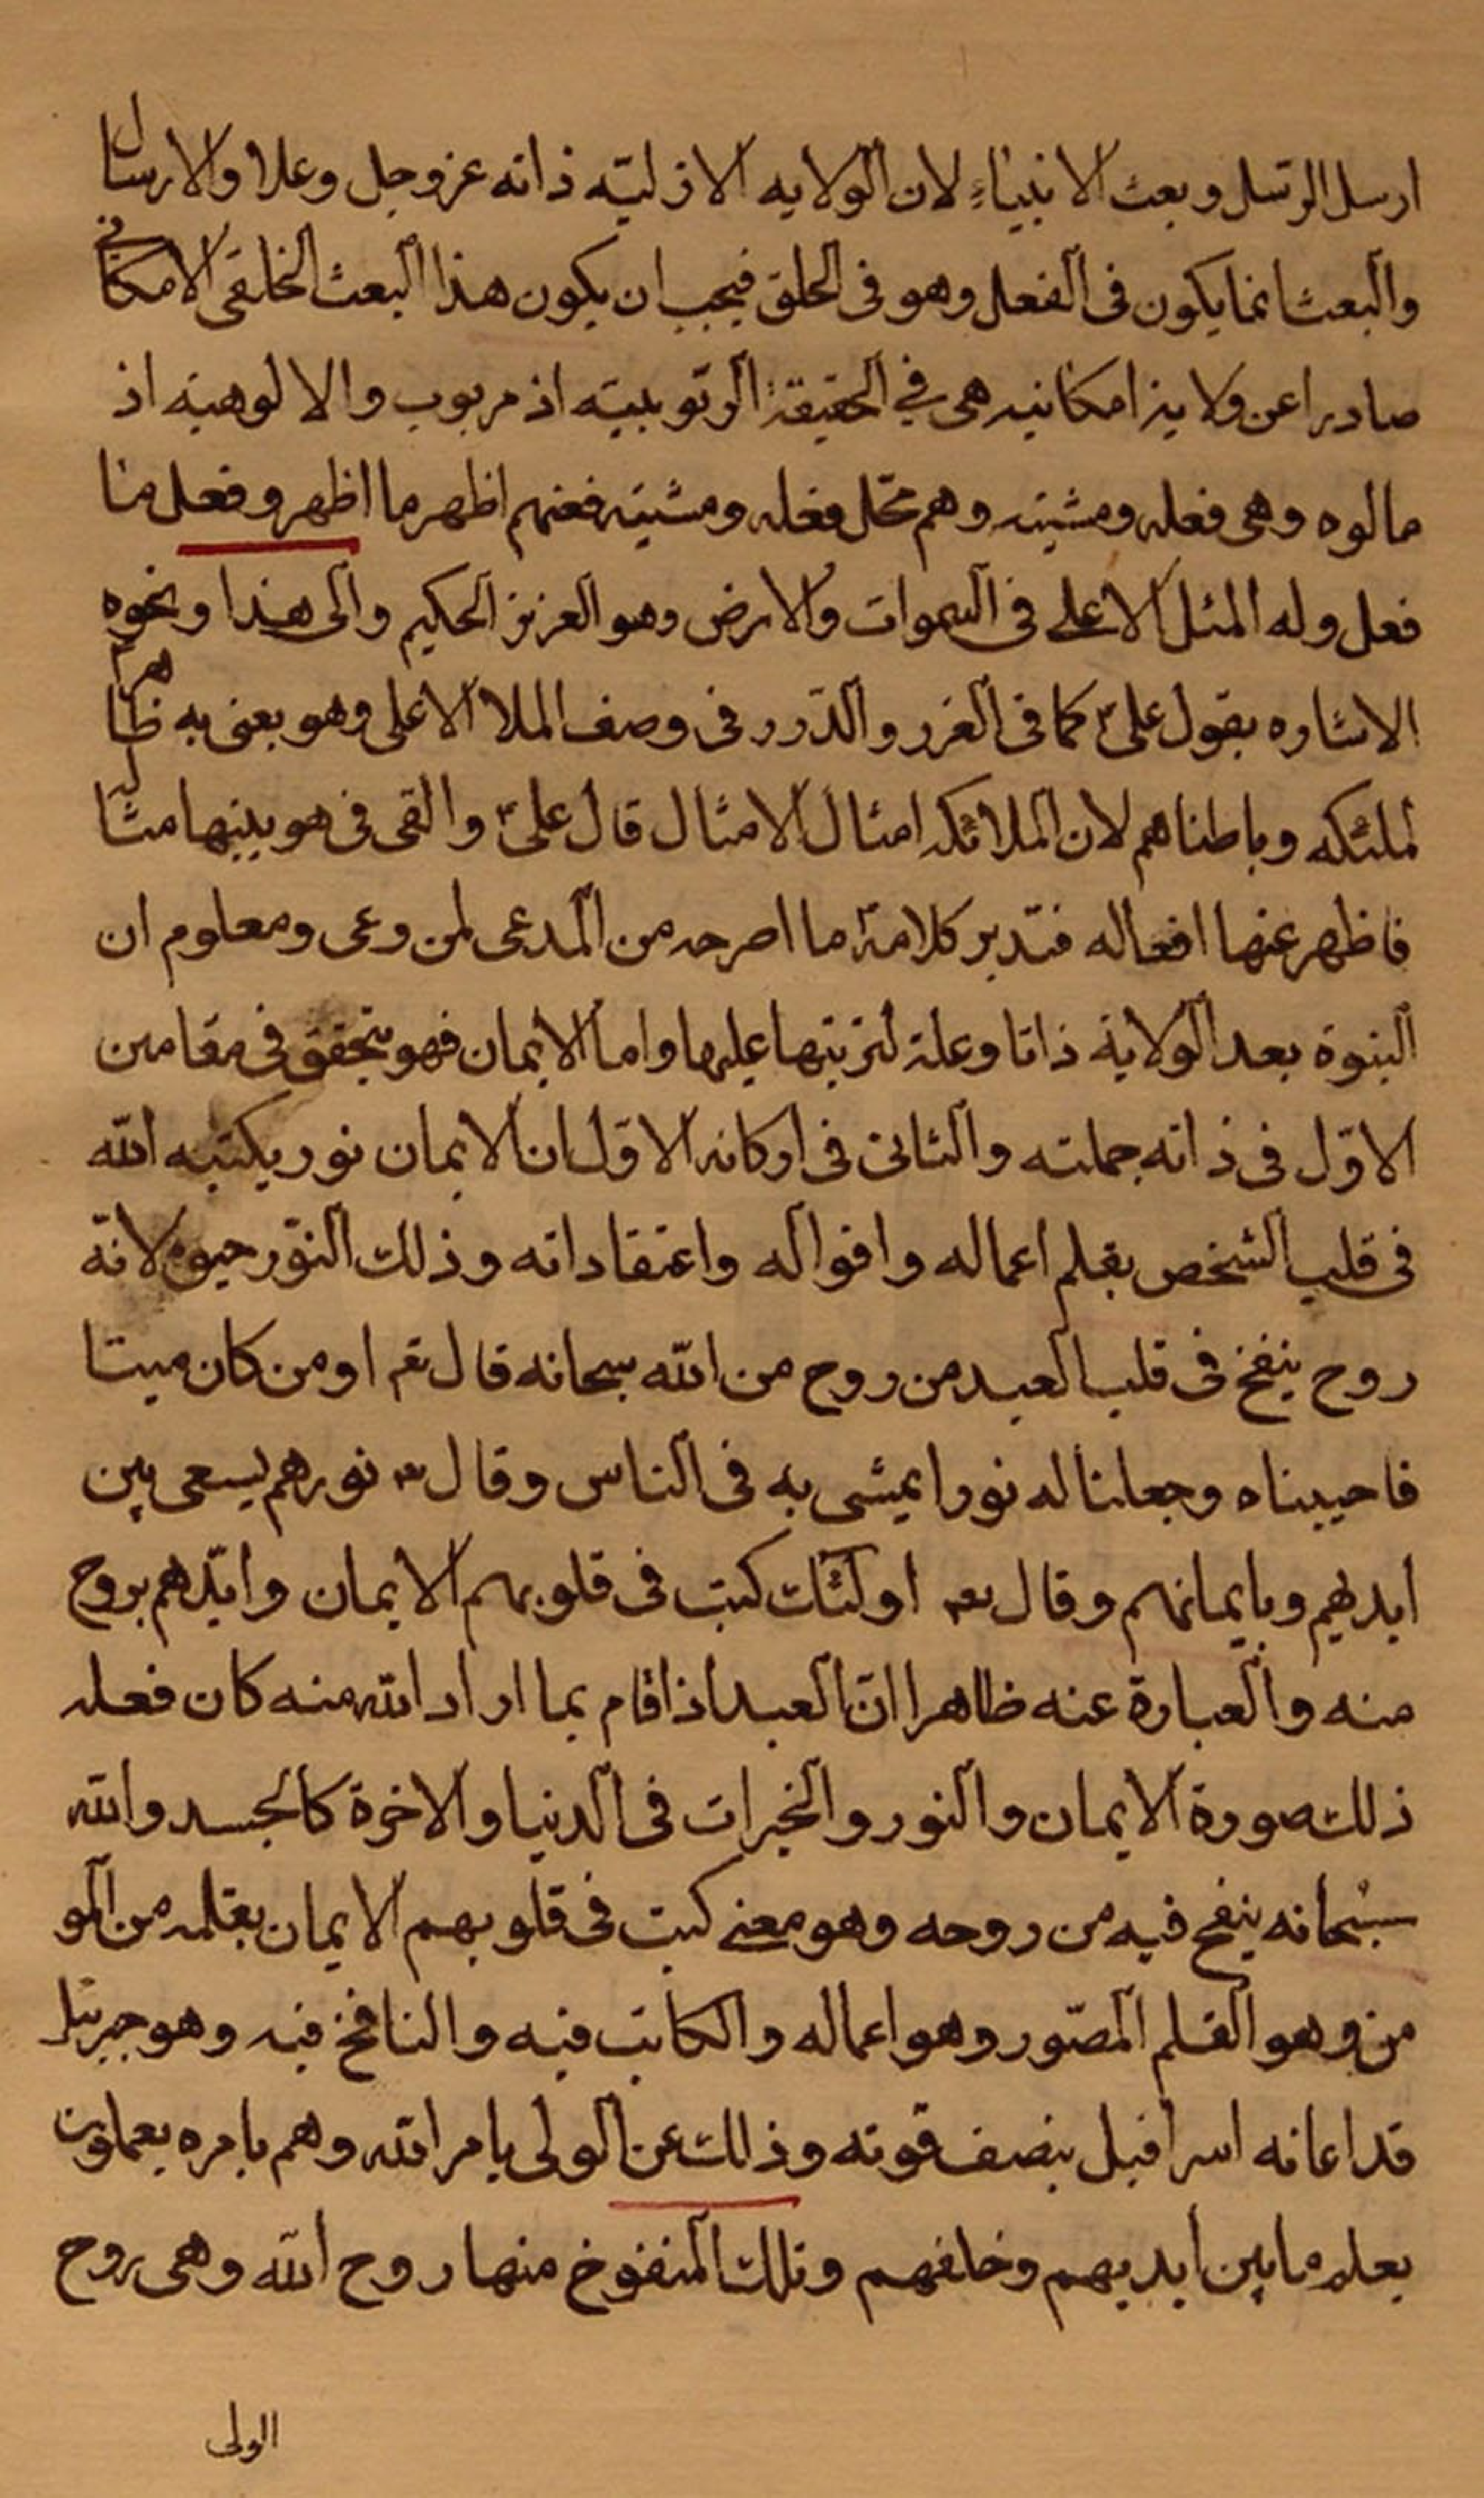 ارسل الرسل وبعث الانبياء لان الولايه الازليّه ذاته عز وجل وعلا والارسال
والبعث انما يكون فى الفعل وهو فى الخلق فيجب ان يكون هذا البعث الخلقى الامكانى
صادرا عن ولاية امكانيه هى في الحقيقة الربوبيته اذ مربوب والالوهيته اذ
مالوه وهى فعله ومشيته وهم محّل فعله ومشيته فعنهم اظهر ما اظهر وفعل منا
فعل وله المثل الاعلى فى السموات والارض وهو العزيز الحكيم والى هذا ونحوه
الاشاره بقول علىّ كما فى الغرر والدّرر فى وصف الملا الاعلى وهو يعنى به ظاهرا
لملئكه وباطناهم لان الملائكه امثال الامثال قال علىّ والقى فى هويتها مثال
فاظهر عنها افعاله فتدبر كلامه ما اصرحه من المدعى لمن وعى ومعلوم ان
النبوة بعد الولاية ذاتا وعلة لترتبها عليها واما الايمان فهو يتحقق فى مقامين
الاوّل فى ذاته جملته والثانى فى اركانه الاوّل ان الايمان نور يكتبه اللّه
فى قلب الشخص بقلم اعماله واقواله واعتقاداته وذلك النّور حيوة لانّه
روح ينفخ فى قلب العبد من روح من اللّه سبحانه قال تع اومن كان ميتا
فاحييناه وجعلنا له نورا يمشى به فى الناس وقال تع نورهم يسعى بين
ايديهم وبايمانهم وقال تع اولئك كتب فى قلوبهم الايمان وايّدهم بروح
منه والعبارة عنه ظاهرا انّ العبد اذا قام بما اراد اللّه منه كان فعله
ذلك صورة الايمان والنور والخيرات فى الدنيا والاخرة كالجسد واللّه
سبحانه ينفخ فيه من روحه وهو معنى كتب فى قلوبهم الايمان بقلمه من المو
من وهو القلم المصّور وهو اعماله والكاتب فيه والنافخ فيه وهو جبرئيل
قد اعانه اسرافيل بنصف قوته وذلك عن الولى بامر اللّه وهم بامره يعملون
يعلم ما بين ايديهم وخلفهم وتلك المنفوخ منها روح اللّه وهى روح
الولى